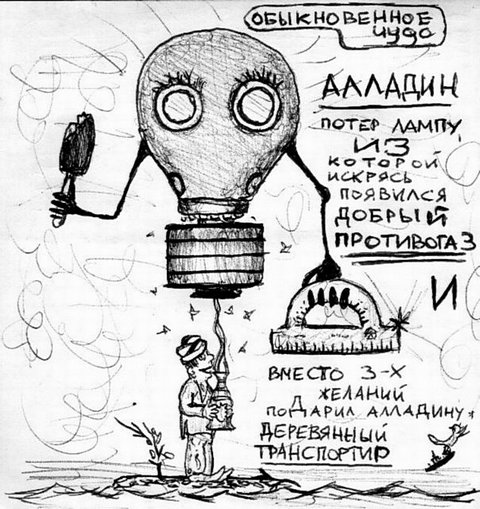 ОБЫКНОВЕННОЕ
чудо
АЛЛАДИН
ПОТЕР ЛАМПУ,
ИЗ
КОТОРОЙ
ИСКРЯСЬ
ПОЯВИЛСЯ
ДОБРЫЙ
ПРОТИВОГАЗ
И
ВМЕСТО 3-Х
ЖЕЛАНИЙ
ПОДАРИЛ АЛЛАДИНУ
ДЕРЕВЯННЫЙ
ТРАНСПОРТИР